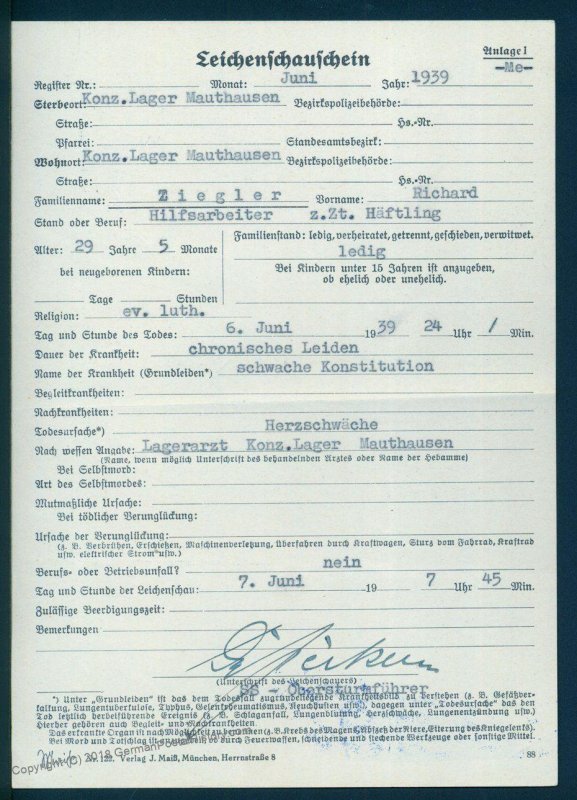 Leichenschauschein
Anlage 1
-Me-
Register Nr.: Monat: Juni Jahr: 1939
Sterbeort: Konz.Lager Mauthausen Bezirkspolizeibehörde:
Straße: Hs.-Nr.
Pfarrei: Standesamtsbezirk:
Wohnort: Konz.Lager Mauthausen Bezirkspolizeibehörde:
Straße: Hs.-Nr.
Familienname: Ziegler Vorname: Richard
Stand oder Beruf: Hilfsarbeiter z.Zt. Häftling
Alter: 29 Jahre 5 Monate
Familienstand: ledig, verheiratet, getrennt, geschieden, verwitwet.
ledig
bei neugeborenen Kindern:
Bei Kindern unter 15 Jahren ist anzugeben,
ob ehelich oder unehelich.
Tage Stunden
Religion: ev. luth.
Tag und Stunde des Todes: 6. Juni 1939 24 Uhr / Min.
Dauer der Krankheit: chronisches Leiden
Name der Krankheit (Grundleiden*) schwache Konstitution
Begleitkrankheiten:
Nachkrankheiten:
Todesursache*) Herzschwäche
Nach wessen Angabe: Lagerarzt Konz.Lager Mauthausen
(Name, wenn möglich Unterschrift des behandelnden Arztes oder Name der Hebamme)
Bei Selbstmord:
Art des Selbstmordes:
Mutmaßliche Ursache:
Bei tödlicher Verunglückung:
Ursache der Verunglückung:
(z. B. Verbrühen, Erschießen, Maschinenverletzung, Überfahren durch Kraftwagen, Sturz vom Fahrrad, Kraftrad
usw. elektrischer Strom usw.)
Berufs- oder Betriebsunfall? nein
Tag und Stunde der Leichenschau: 7. Juni 19 7 Uhr 45 Min.
Zulässige Beerdigungszeit:
Bemerkungen
(Unterschrift des Leichenschauers)
SS - Obersturmführer
*) Unter „Grundleiden" ist das dem Todesfall zugrundeliegende Krankheitsbild zu verstehen (z. B. Gefäßver-
kalkung, Lungentuberkulose, Typhus, Gelenkrheumatismus, Keuchhusten usw.), dagegen unter "Todesursache" das den
Tod letztlich herbeiführende Ereignis (z. B. Schlaganfall, Lungenblutung, Herzschwäche, Lungenentzündung usw.)
Hierher gehören auch Begleit- und Nachkrankheiten.
Das erkrankte Organ ist nach Möglichkeit zu bezeichnen (z. B. Krebs des Magens, Abszeß der Niere, Eiterung des Kniegelenks)
Bei Mord und Totschlag ist anzugeben, ob durch Feuerwaffen, schneidende und stechende Werkzeuge oder sonstige Mittel.
Nr. 129. Verlag J. Maiß, München, Herrnstraße 8
88
Copyright (C) 2018 GermanPostalHistory.com